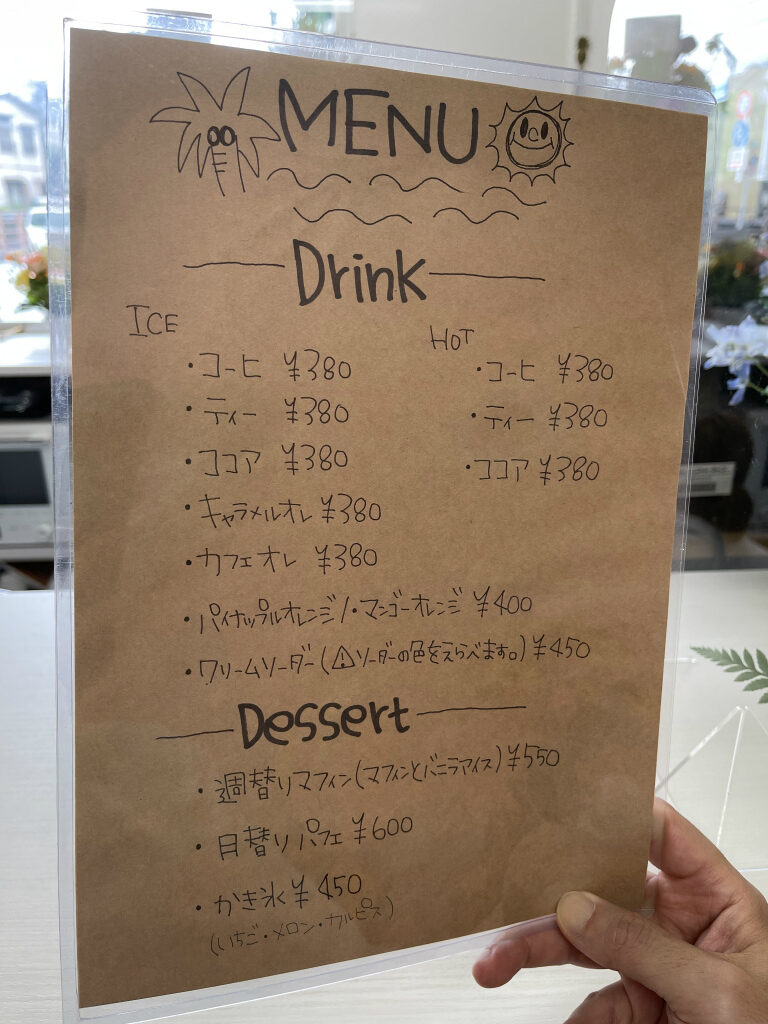 MENU
Drink
ICE
・コーヒ ¥380
・ティー ¥380
・ココア ¥380
・キャラメルオレ ¥380
・カフェオレ ¥380
・パイナップルオレンジ/・マンゴーオレンジ ¥400
・クリームソーダー(⚠ソーダーの色をえらべます。) ¥450
HOT
・コーヒ ¥380
・ティー ¥380
・ココア ¥380
Dessert
・週替りマフィン(マフィンとバニラアイス) ¥550
・日替りパフェ ¥600
・かき氷 ¥450
(いちご・メロン・カルピス)